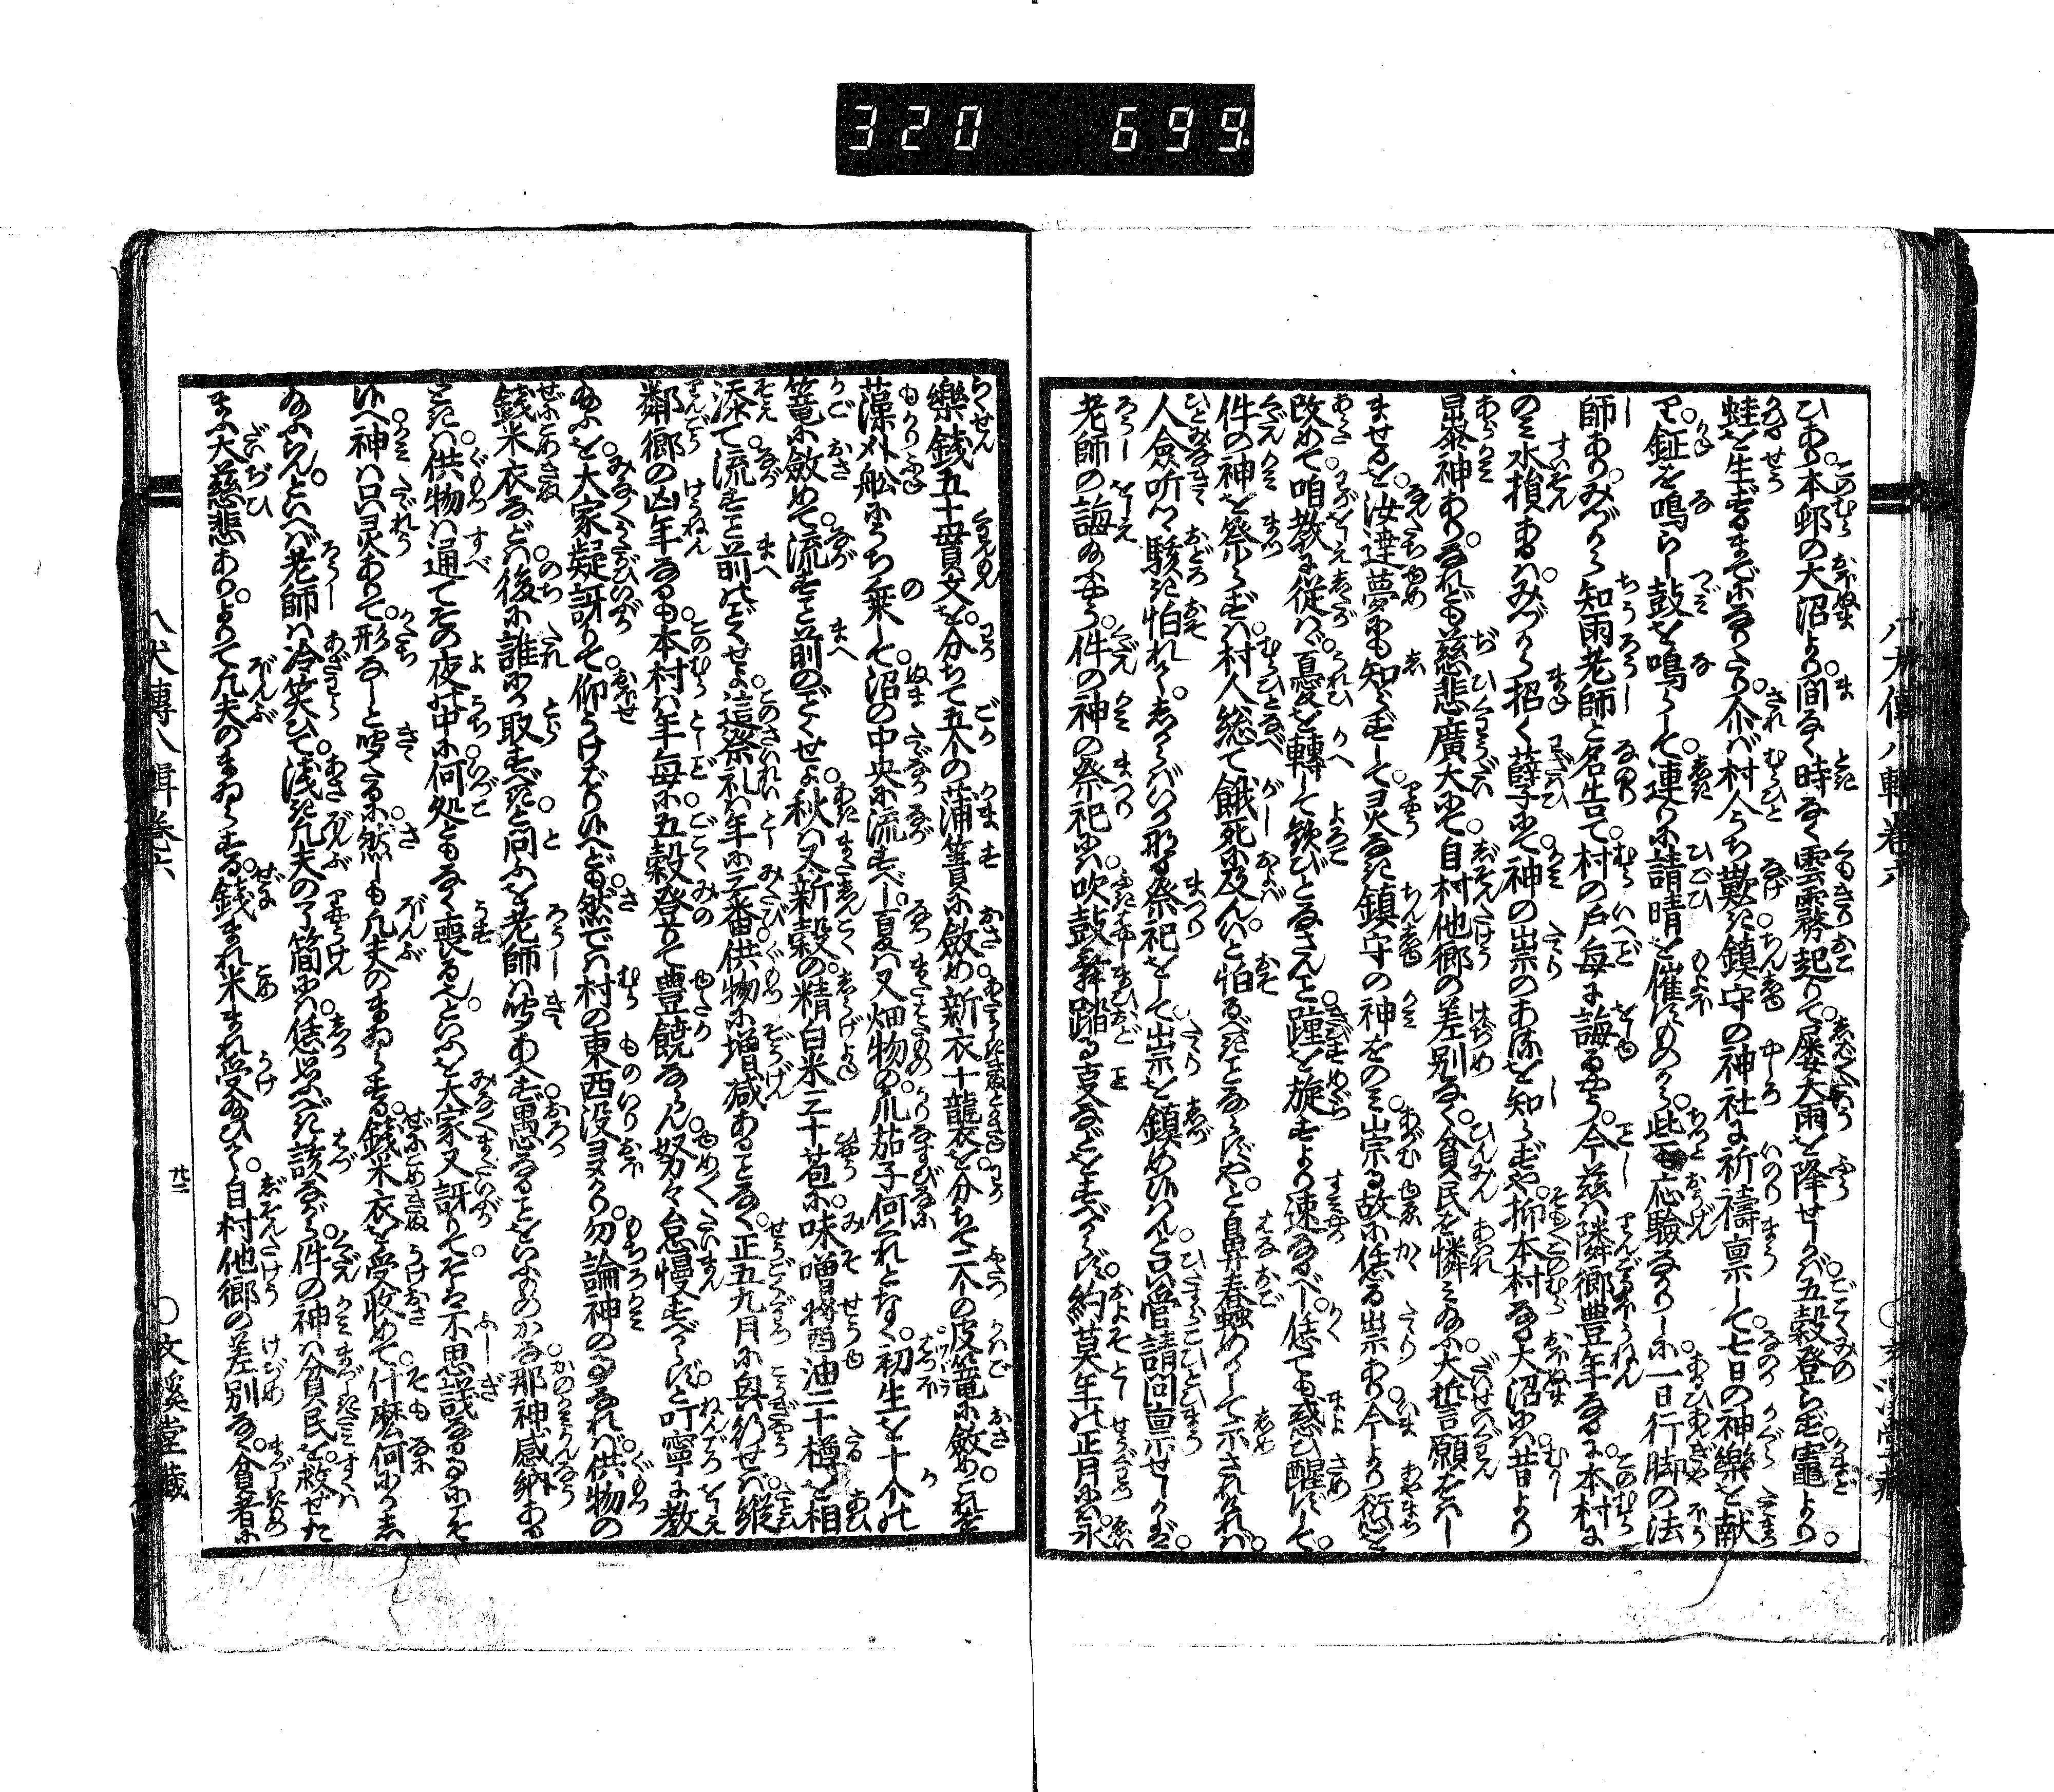 320 699
ひあり。本邨の大沼より。間なく時なく雲霧起りて。屡大雨を降せしかば。五穀登らず。竈より。
蛙を生ずるまでになりぬ。介ば村人うち歎き。鎮守の神社に祈禱稟して。七日の神樂を献
り。鉦を鳴らし鼓を鳴らして。連りに請晴を催すものから。些も応驗なかりしに。一日行脚の法
師あり。みづから知雨老師と名告て。村の戸毎に誨るやう。今茲は隣郷豊年なるに。本村に
のみ水損あるは。みづから招く孽にて。神の祟のあるを知らずや。抑本村なる大沼には。昔より
暴神あり。されども慈悲廣大にて。自村他郷の差別なく。貧民を憐みたまふ。大誓願をおこし
ませるを。汝達夢にも知らずして。灵なき鎮守の神をのみ崇る故に。恁る祟あり。今より愆を
改めて。咱教に従はゞ。憂を轉して歓びとなさんこと。踵を旋すより速なるべし。恁ても惑ひ醒ずして。
件の神を祭らずは。村人総て餓死に及んかと。怕るべきことならずや。と鼻春蠢めかして示されければ。
人僉听て駭き怕れて。しからばいかなる祭祀をして。祟を鎮め候はんと。只管請問稟せしかば。
老師の誨給ふやう。件の神の祭祀には。吹鼓舞踏る夏などをすべからず。約莫年の正月には。永
樂銭五十貫文を。分ちて五个の蒲簀に斂め。新衣十襲を。分ちて二个の皮篭に斂め。これを
藻苅舩にうち乗して。沼の中央に流すべし。夏は又畑物の。爪茄子何くれとなく。初生を十个の
篭に斂めて。流すこと前のごとくせよ。秋は又新穀の。精白米三十苞に。味噌醤油二十樽を相
添て。流すこと前のごとくせよ。這祭礼は年に三番。供物に増减あることなく。正五九月に執行せば。縦
鄰郷の凶年なるも。本村は年毎に。五穀登りて豊饒ならん。努々怠慢すべからずと。叮寧に教
給ふを。大家疑訝りて。仰うけ給はり候へども。然では村の東西没多かり。勿論神の事なれば。供物の
銭米衣などは。後に誰にか取すべき。と問ふを老師は听あへず。愚なることをいふものかな。那神感納ある
ときは。供物は通てその夜中に。何処ともなく喪るべし。といふを大家又訝りて。そは不思議なる事にこそ
候へ。神は只灵ありて。形なしと听たるに。然しも凡夫のまゐらする。銭米衣を受收めて。什麼何にかし
給ふらん。といへば老師は冷笑ひて。浅き凡夫の了簡には。恁思ふべき該ながら。件の神は貧民を。救せた
まふ大慈悲あり。よりて凡夫のまゐらする。銭まれ米まれ受給ひて。自村他郷の差別なく。貧者に
八犬傳八輯卷六
八犬傳八輯卷六
廿二
○文溪堂藏
○文溪堂藏